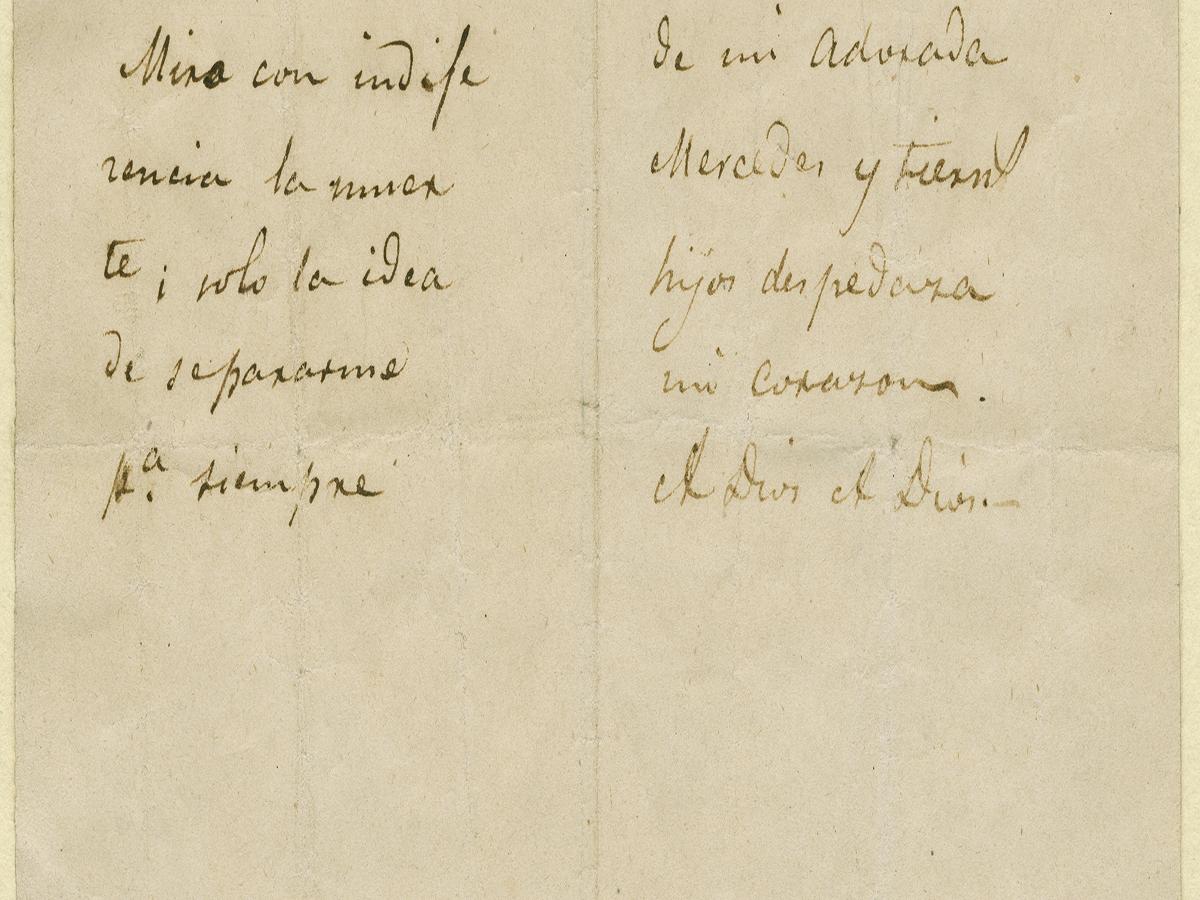 Miro con indife
rencia la muer
te; solo la idea
de separarme
pa. siempre
de mi adorada
Mercedes y tiernos
hijos despedaza
mi corazon.
A Dios A Dios.—